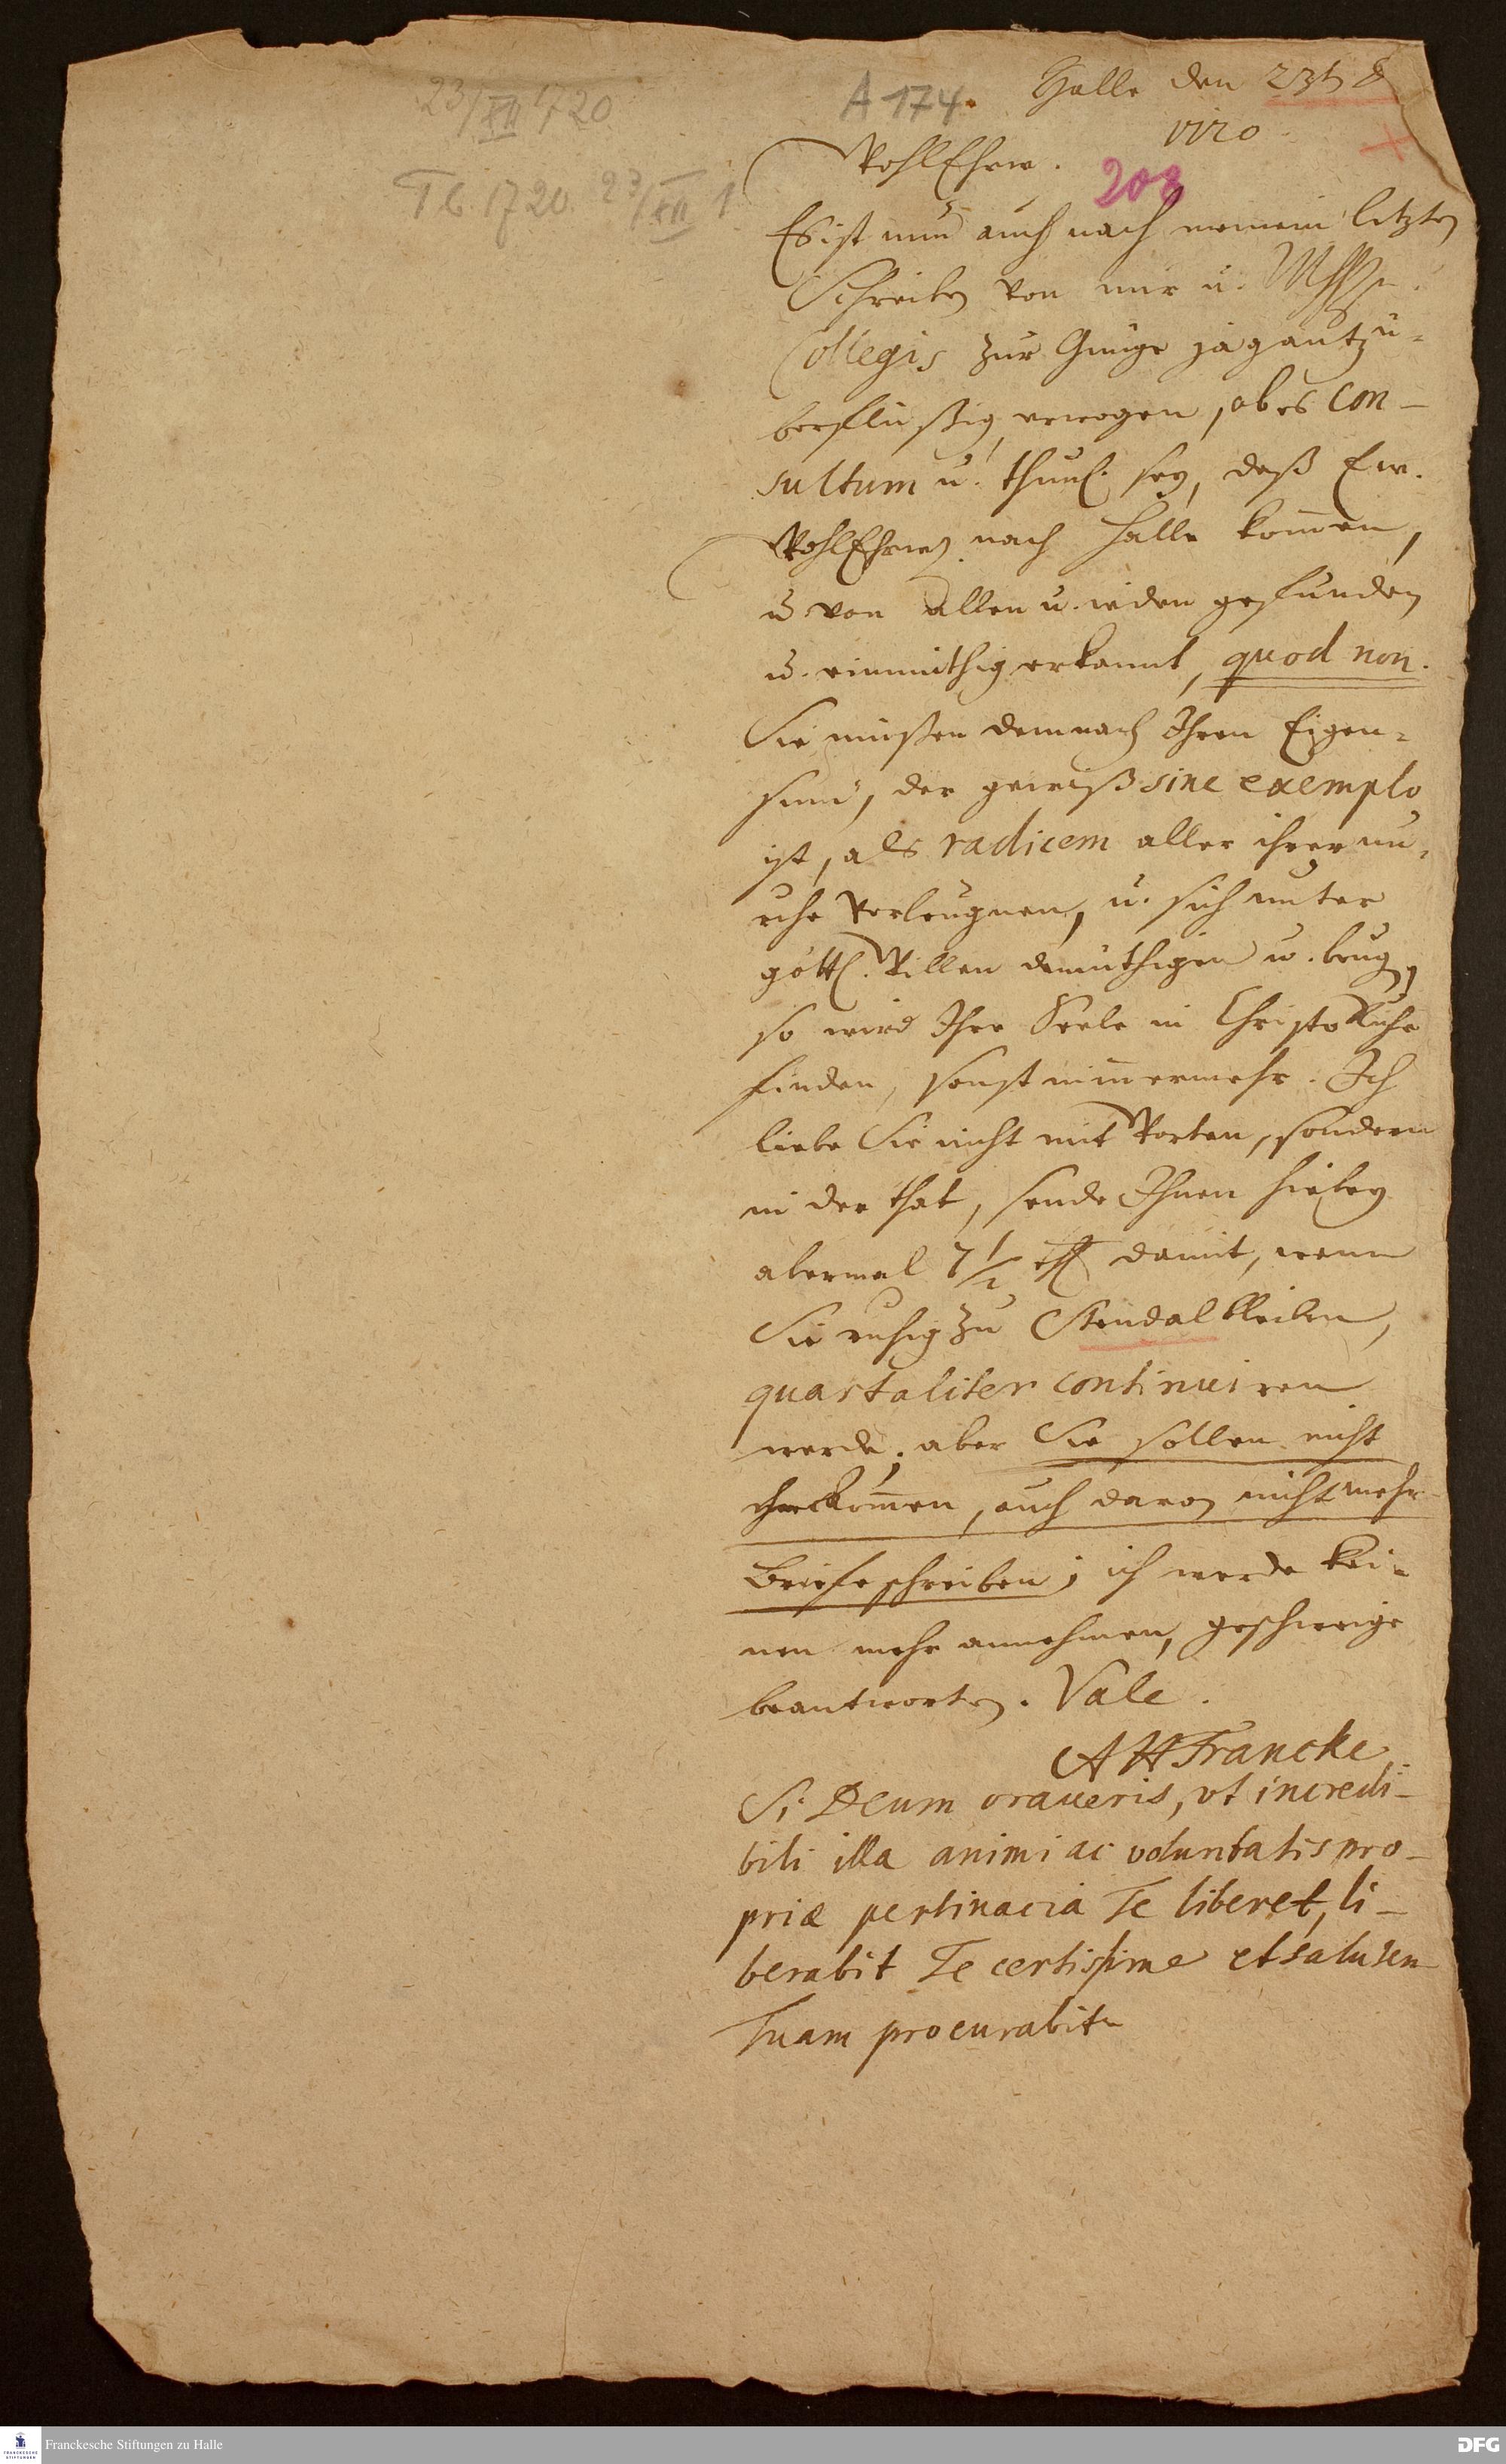 23/XII 1720
A 174.
Halle den 23t. d
1720.
WohlEhrw.
208
Tb. 1720. 23/XII 1
Es ist nun auch nach meinem letzten
Schreiben von mir u.
Collegis zur Gnüge ja gantz ü-
berflüßig erwogen, ob es con-
sultum u. thunl. sey, daß Ew.
WohlEhrw. nach Halle kom̅en,
u. von allen u. ieden gefunden
u. einmüthig erkannt, quod non.
Sie müßen demnach Ihren Eigen-
sinn, der gewiß sine exemplo
ist, als radicem aller ihrer un-
ruhe verleugnen, u. sich unter
göttl. Willen demüthigen u. beugen,
so wird Ihre Seele in Christo Ruhe
finden, sonst nim̅ermehr. Ich
liebe Sie nicht mit Worten, sondern
in der that, sende Ihnen hiebey
abermal 7 1/2 rth damit, wenn
Sie ruhig zu Stendal bleiben,
quartaliter continuiren
werde; aber Sie sollen nicht
kom̅en, auch davon nicht mehr
Briefe schreiben; ich werde kei-
nen mehr annehmen, geschweige
beantworten. Vale.
AHFrancke.
Si Deum oraveris, vt incredi-
bili illa animi ac voluntatis pro-
priæ pertinacia Te liberet, li-
berabit Te certissime et salutem
Tuam procurabit.
Franckesche Stiftungen zu Halle
FRANCKESCHE
STIFTUNGEN
DFG